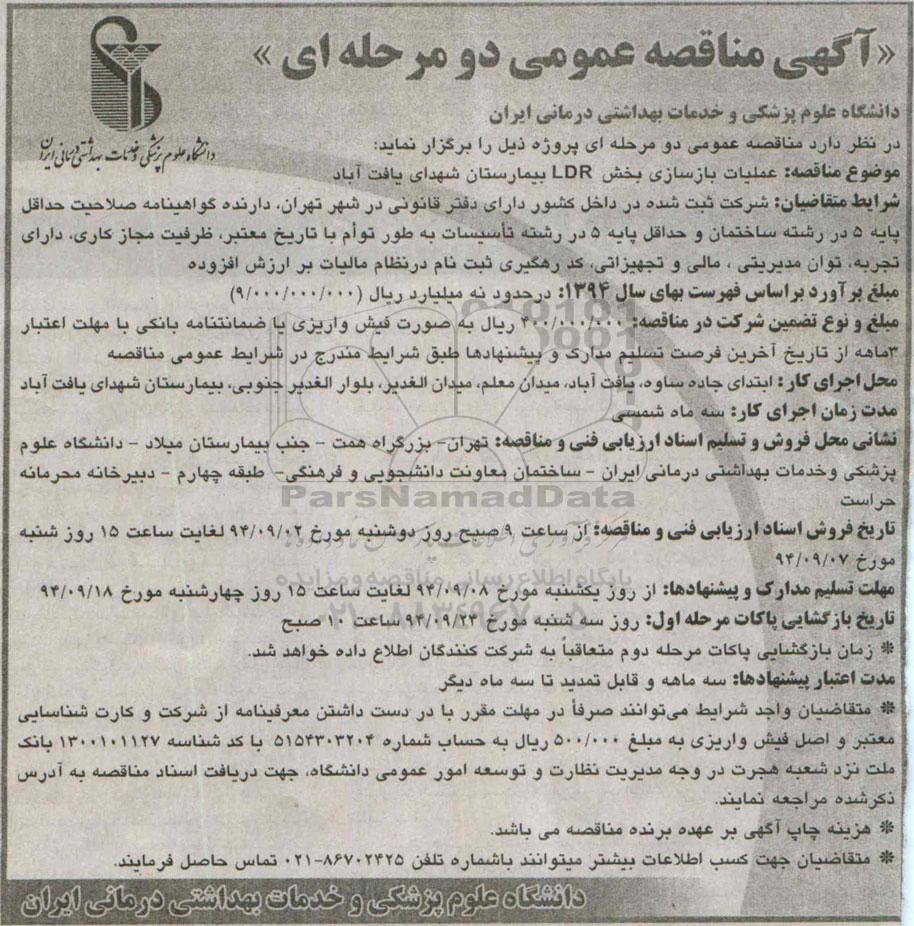 «آگهی مناقصه عمومی دو مرحله ای»
دانشگاه علوم پزشکی و خدمات بهداشتی درمانی ایران
دانشگاه علوم پزشکی و خدمات بهداشتی درمانی ایران
در نظر دارد مناقصه عمومی دو مرحله ای پروژه ذیل را برگزار نماید:
موضوع مناقصه: عملیات بازسازی بخش LDR بیمارستان شهدای یافت آباد
شرایط متقاضیان: شرکت ثبت شده در داخل کشور دارای دفتر قانونی در شهر تهران، دارنده گواهینامه صلاحیت حداقل
پایه ۵ در رشته ساختمان و حداقل پایه ۵ در رشته تأسیسات به طور توأم با تاریخ معتبر، ظرفیت مجاز کاری، دارای
تجربه، توان مدیریتی، مالی و تجهیزاتی، کد رهگیری ثبت نام درنظام مالیات بر ارزش افزوده
مبلغ برآورد براساس فهرست بهای سال ۱۳۹۴: درحدود نه میلیارد ریال (۹/۰۰۰/۰۰۰/۰۰۰)
مبلغ و نوع تضمین شرکت در مناقصه: ۴۰۰/۰۰۰/۰۰۰ ریال به صورت فیش واریزی یا ضمانتنامه بانکی با مهلت اعتبار
۳ماهه از تاریخ آخرین فرصت تسلیم مدارک و پیشنهادها طبق شرایط مندرج در شرایط عمومی مناقصه
محل اجرای کار: ابتدای جاده ساوه، یافت آباد، میدان معلم، میدان الغدیر، بلوار الغدیر جنوبی، بیمارستان شهدای یافت آباد
مدت زمان اجرای کار: سه ماه شمسی
نشانی محل فروش و تسلیم اسناد ارزیابی فنی و مناقصه: تهران- بزرگراه همت - جنب بیمارستان میلاد - دانشگاه علوم
پزشکی وخدمات بهداشتی درمانی ایران - ساختمان معاونت دانشجویی و فرهنگی- طبقه چهارم - دبیرخانه محرمانه
حراست
ParsNamadData
تاریخ فروش اسناد ارزیابی فنی و مناقصه: از ساعت ۹ صبح روز دوشنبه مورخ ۹۴/۰۹/۰۲ لغایت ساعت ۱۵ روز شنبه
مورخ ۹۴/۰۹/۰۷
پایگاه اطلاع رسانی مناقصه و مزایده
مهلت تسلیم مدارک و پیشنهادها: از روز یکشنبه مورخ ۹۴/۰۹/۰۸ لغایت ساعت ۱۵ روز چهارشنبه مورخ ۹۴/۰۹/۱۸
تاریخ بازگشایی پاکات مرحله اول: روز سه شنبه مورخ ۹۴/۰۹/۲۴ ساعت ۱۰ صبح
* زمان بازگشایی پاکات مرحله دوم متعاقباً به شرکت کنندگان اطلاع داده خواهد شد.
مدت اعتبار پیشنهادها: سه ماهه و قابل تمدید تا سه ماه دیگر
* متقاضیان واجد شرایط می‌توانند صرفاً در مهلت مقرر با در دست داشتن معرفینامه از شرکت و کارت شناسایی
معتبر و اصل فیش واریزی به مبلغ ۵۰۰/۰۰۰ ریال به حساب شماره ۵۱۵۴۳۰۳۲۰۴ با کد شناسه ۱۳۰۰۱۰۱۱۲۷ بانک
ملت نزد شعبه هجرت در وجه مدیریت نظارت و توسعه امور عمومی دانشگاه، جهت دریافت اسناد مناقصه به آدرس
ذکرشده مراجعه نمایند.
* هزینه چاپ آگهی بر عهده برنده مناقصه می باشد.
* متقاضیان جهت کسب اطلاعات بیشتر میتوانند باشماره تلفن ۸۶۷۰۲۴۲۵-۰۲۱ تماس حاصل فرمایند.
دانشگاه علوم پزشکی و خدمات بهداشتی درمانی ایران